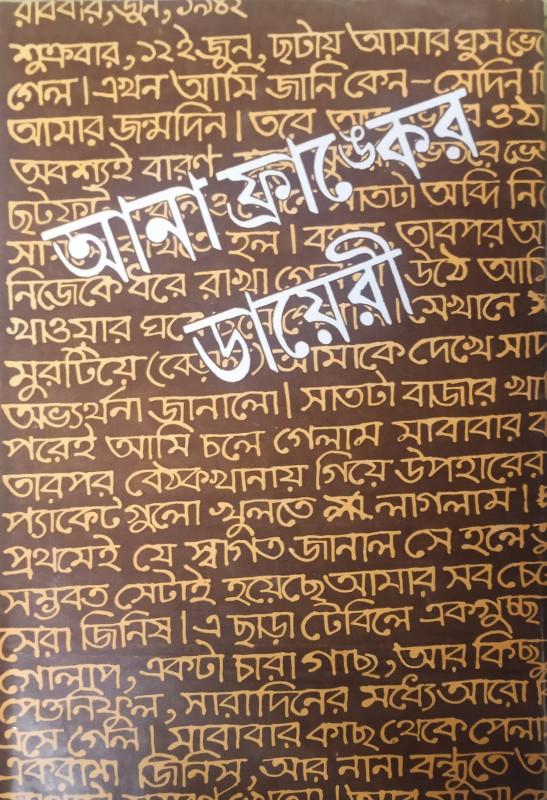 রবিবার, জুন, ১৯৪২
শুক্রবার, ১২ই জুন, ছটায় আমার ঘুম ভে
গেল। এখন আমি জানি কেন – সেদিন
আমার জন্মদিন। তবে ওঠ
অবশ্যই বারণ
আনা ফ্রাঙ্কের
ডায়েরী
সাতটা অব্দি নি
হল। তারপর আ
নিজেকে ধরে রাখা গে উঠে আমি
খাওয়ার ঘরে সেখানে
মুরটিয়ে (বেড়াল) আমাকে দেখে সাদ
অভ্যর্থনা জানালো। সাতটা বাজার খা
পরেই আমি চলে গেলাম মাবাবার ক
তারপর বৈঠকখানায় গিয়ে উপহারের
প্যাকেটগুলো খুলতে লাগলাম।
প্রথমেই যে স্বাগত জানাল সে হলে
সম্ভবত সেটাই হয়েছে আমার সব চেয়ে
সেরা জিনিষ। এ ছাড়া টেবিলে একগুচ্ছ
গোলাপ, একটা চারা গাছ, আর কিছু
পেওনিফুল, সারাদিনের মধ্যে আরো
এসে গেল। মাবাবার কাছ থেকে পেলা
একরাশ জিনিস, আর নানা বন্ধুতে